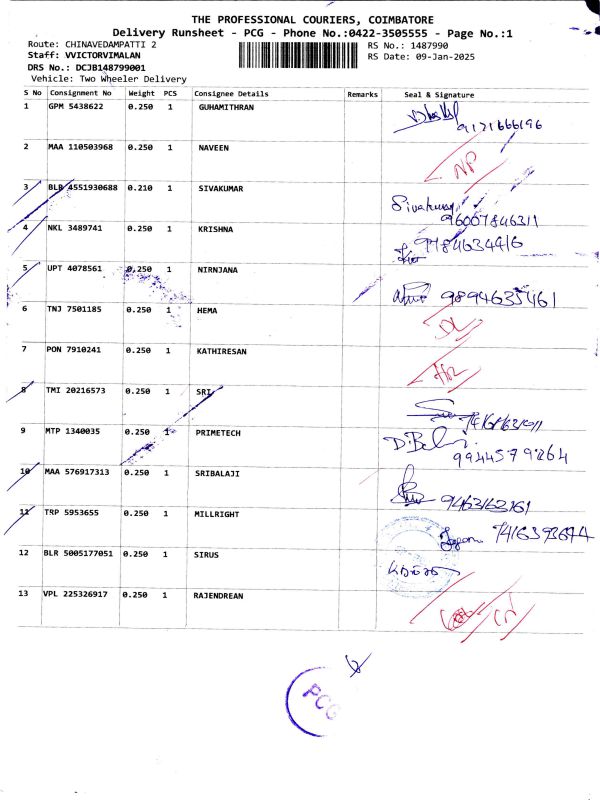 THE PROFESSIONAL COURIERS, COIMBATORE
Delivery Runsheet - PCG - Phone No.:0422-3505555 - Page No.:1
Route: CHINAVEDAMPATTI 2
RS No.: 1487990
Staff: VVICTORVIMALAN
RS Date: 09-Jan-2025
DRS No.: DCJB148799001
Vehicle: Two Wheeler Delivery
S No Consignment No Weight PCS Consignee Details Remarks Seal & Signature
1 GPM 5438622 0.250 1 GUHAMITHRAN
9171666196
2 MAA 110503968 0.250 1 NAVEEN NP
3 BLR 4551930688 0.210 1 SIVAKUMAR Sivakumar
96007846311
4 NKL 3489741 0.250 1 KRISHNA 9784634416
5 UPT 4078561 0.250 1 NIRNJANA 9894635461
6 TNJ 7501185 0.250 1 HEMA DL
7 PON 7910241 0.250 1 KATHIRESAN
8 TMI 20216573 0.250 1 SRI
9 MTP 1340035 0.250 1 PRIMETECH
9944579264
10 MAA 576917313 0.250 1 SRIBALAJI 9463163161
11 TRP 5953655 0.250 1 MILLRIGHT 7416393674
12 BLR 5005177051 0.250 1 SIRUS
13 VPL 225326917 0.250 1 RAJENDREAN
PCG